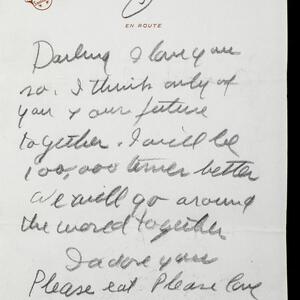 EN ROUTE
Darling I love you
so. I think only of
you & our future
together. I will be
100,000 times better
We will go around
the world together
I adore you
Please eat Please love